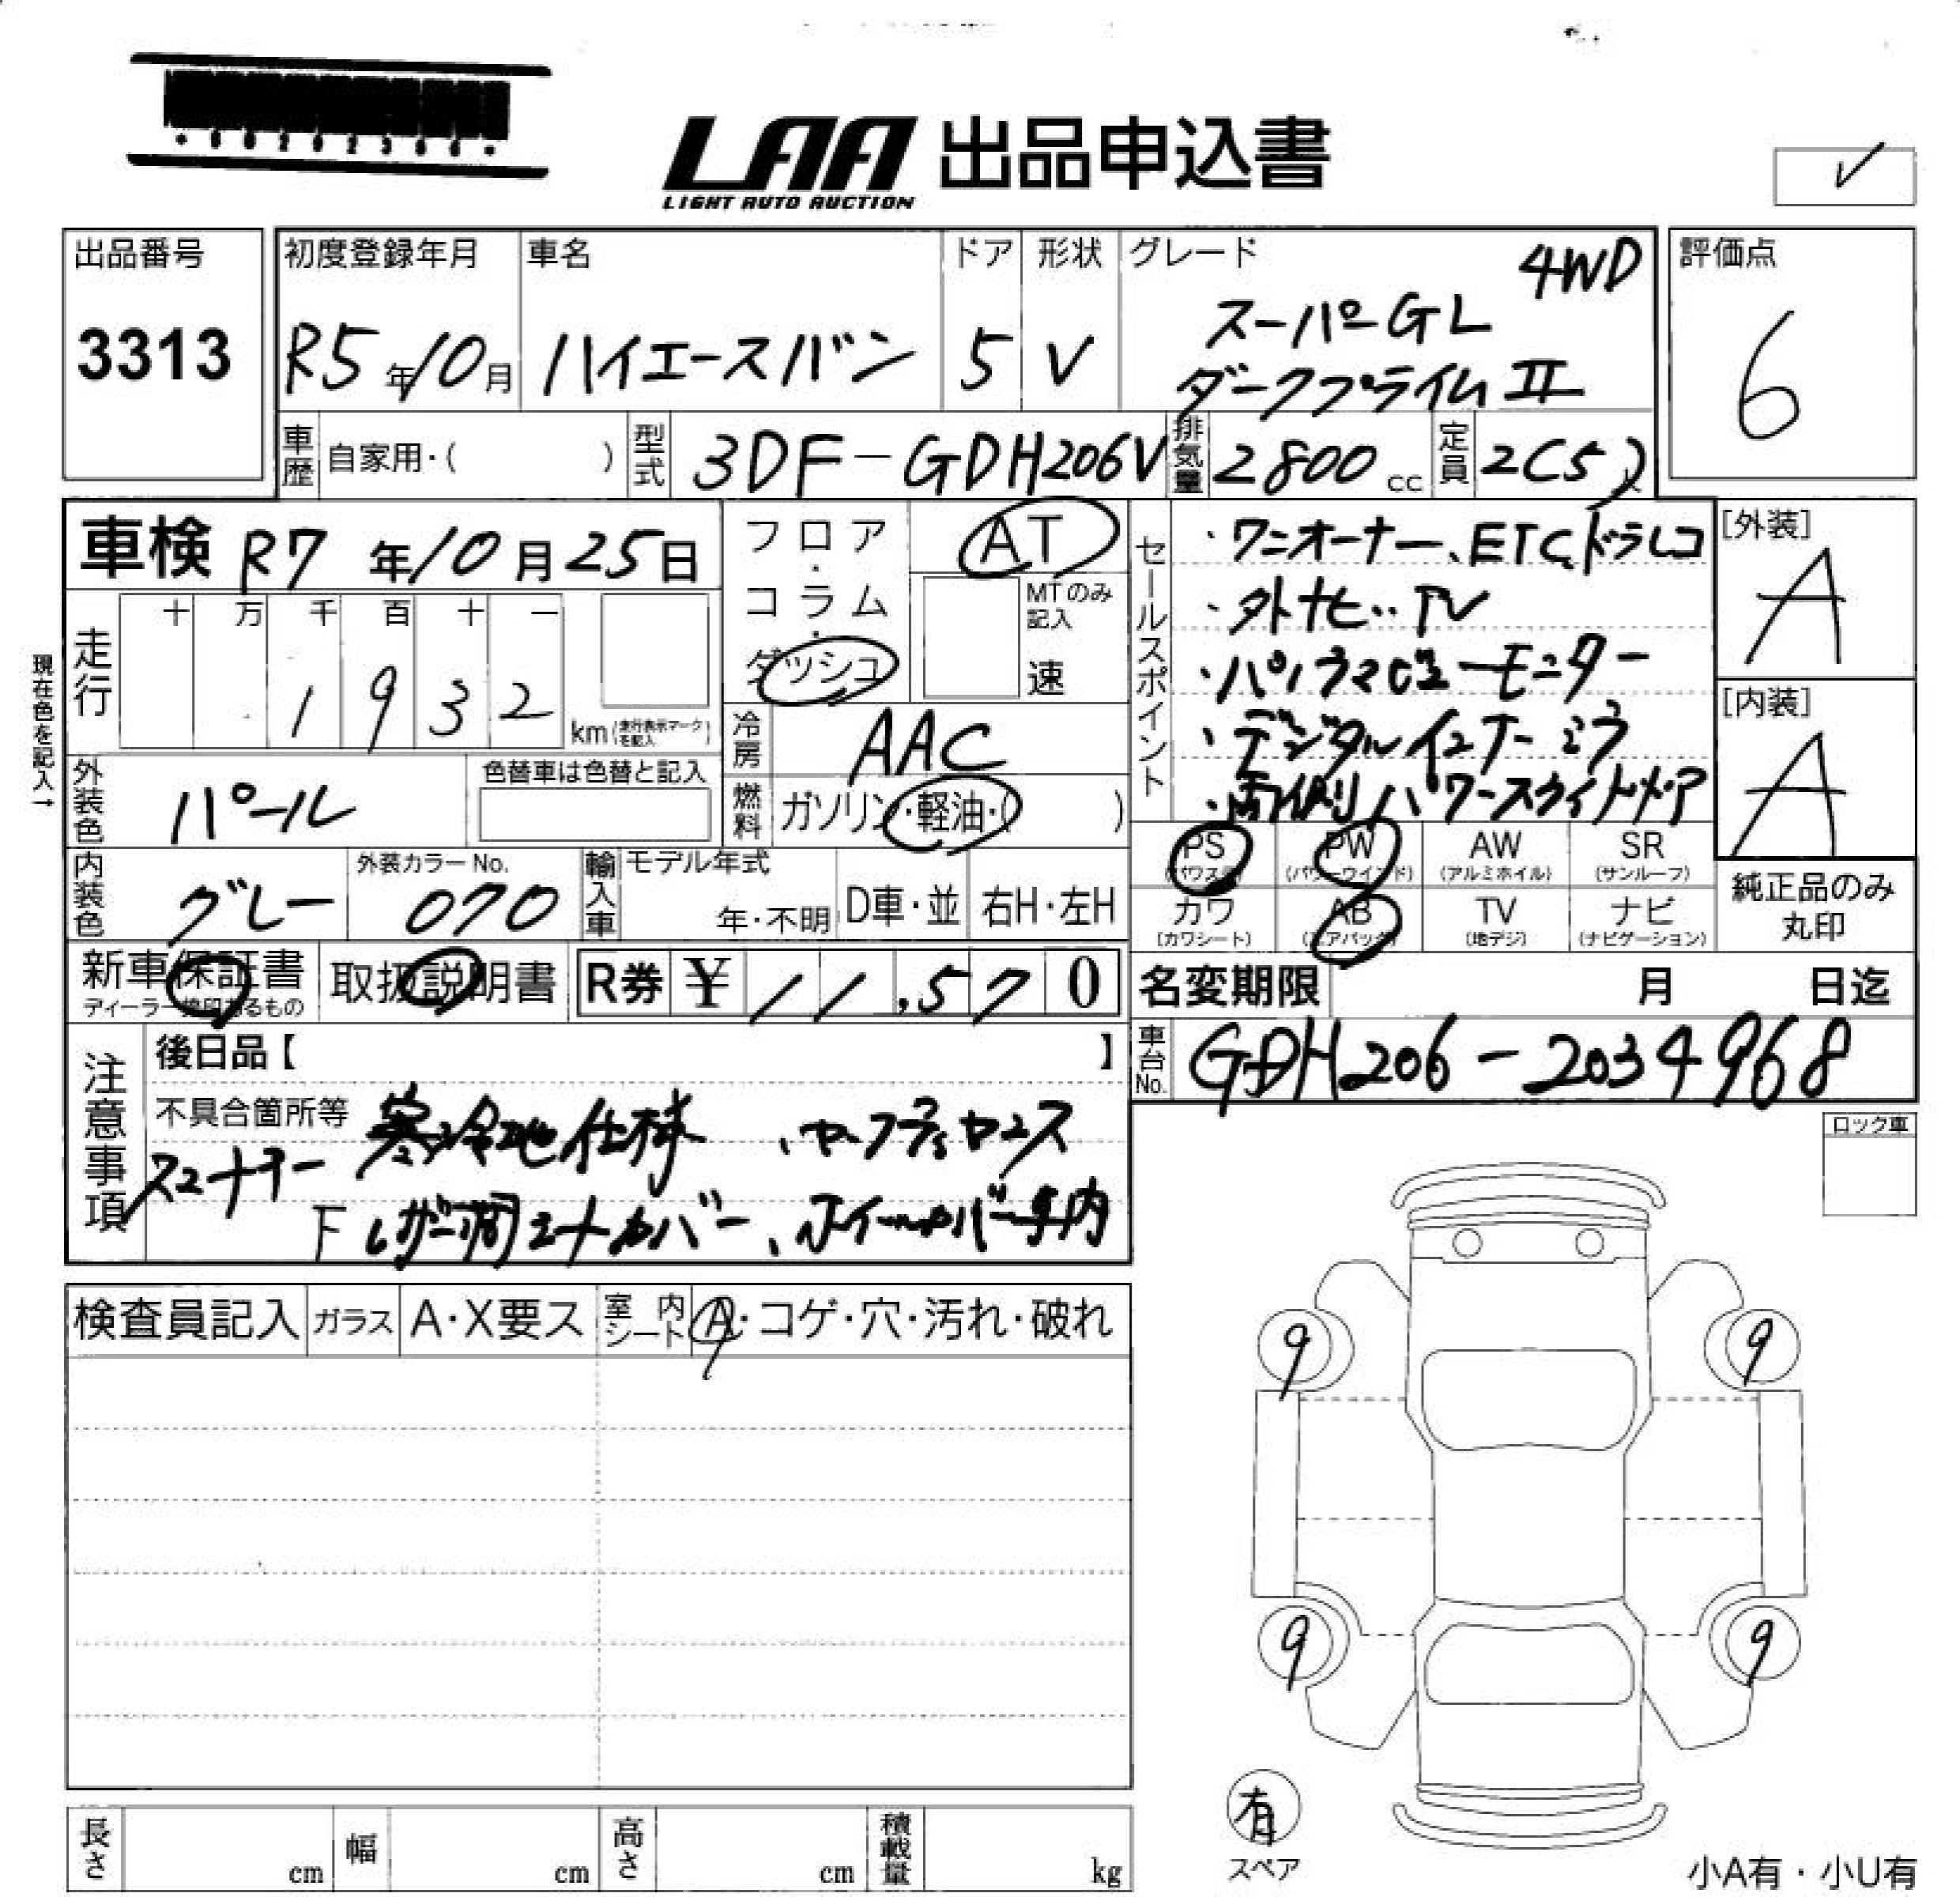 LAA 出品申込書
LIGHT AUTO AUCTION
✓
出品番号
3313
初度登録年月
R5年10月
車名
ハイエースバン
ドア
5
形状
V
グレード
4WD
スーパーGL
ダークプライムII
評価点
6
車歴 自家用・( )
型式 3DF-GDH206V
排気量 2800 cc
定員 2(5)人
車検 R7年10月25日
フロア・コラム・ダッシュ
AT
MTのみ記入
速
セールスポイント
・ワンオーナー、ETC、ドラレコ
・外ナビ・TV
・パノラマビューモニター
・デジタルインナーミラー
・両側パワースライドドア
[外装]
A
[内装]
A
現在色を記入→
走行
十 万 千 百 十 一
1 9 3 2
km(走行表示マークを記入)
冷房 AAC
外装色 パール
色替車は色替と記入
燃料 ガソリン・軽油・( )
内装色 グレー
外装カラーNo.
070
輸入車
モデル年式
年・不明
D車・並
右H・左H
PS (パワステ)
PW (パワーウインド)
AW (アルミホイル)
SR (サンルーフ)
カワ (カワシート)
AB (エアバッグ)
TV (地デジ)
ナビ (ナビゲーション)
純正品のみ
丸印
新車保証書
ディーラー捺印あるもの
取扱説明書
R券 ¥ 11,570
名変期限 月 日迄
車台No. GDH206-2034968
注意事項
後日品【 】
不具合箇所等
寒冷地仕様 、セーフティセンス
カバー、ホイールカバー車内
ロック車
検査員記入
ガラス A・X要ス
室内シート A・コゲ・穴・汚れ・破れ
9
9
9
9
有
スペア
長さ cm
幅 cm
高さ cm
積載量 kg
小A有・小U有